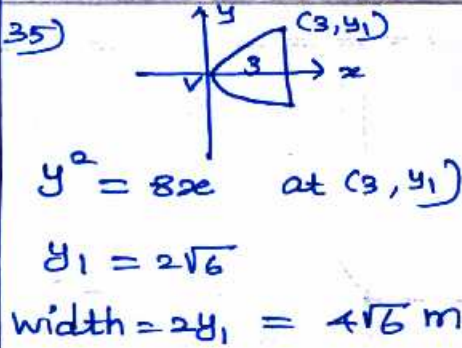 35)
y
(3, y₁)
3
x
V
y² = 8x at (3, y₁)
y₁ = 2√6
width = 2y₁ = 4√6 m